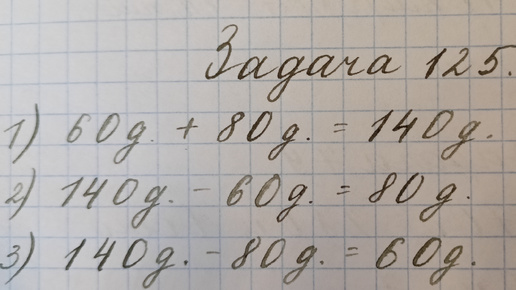 Задача 125.
1) 60д. + 80д. = 140д.
2) 140д. - 60д. = 80д.
3) 140д. - 80д. = 60д.